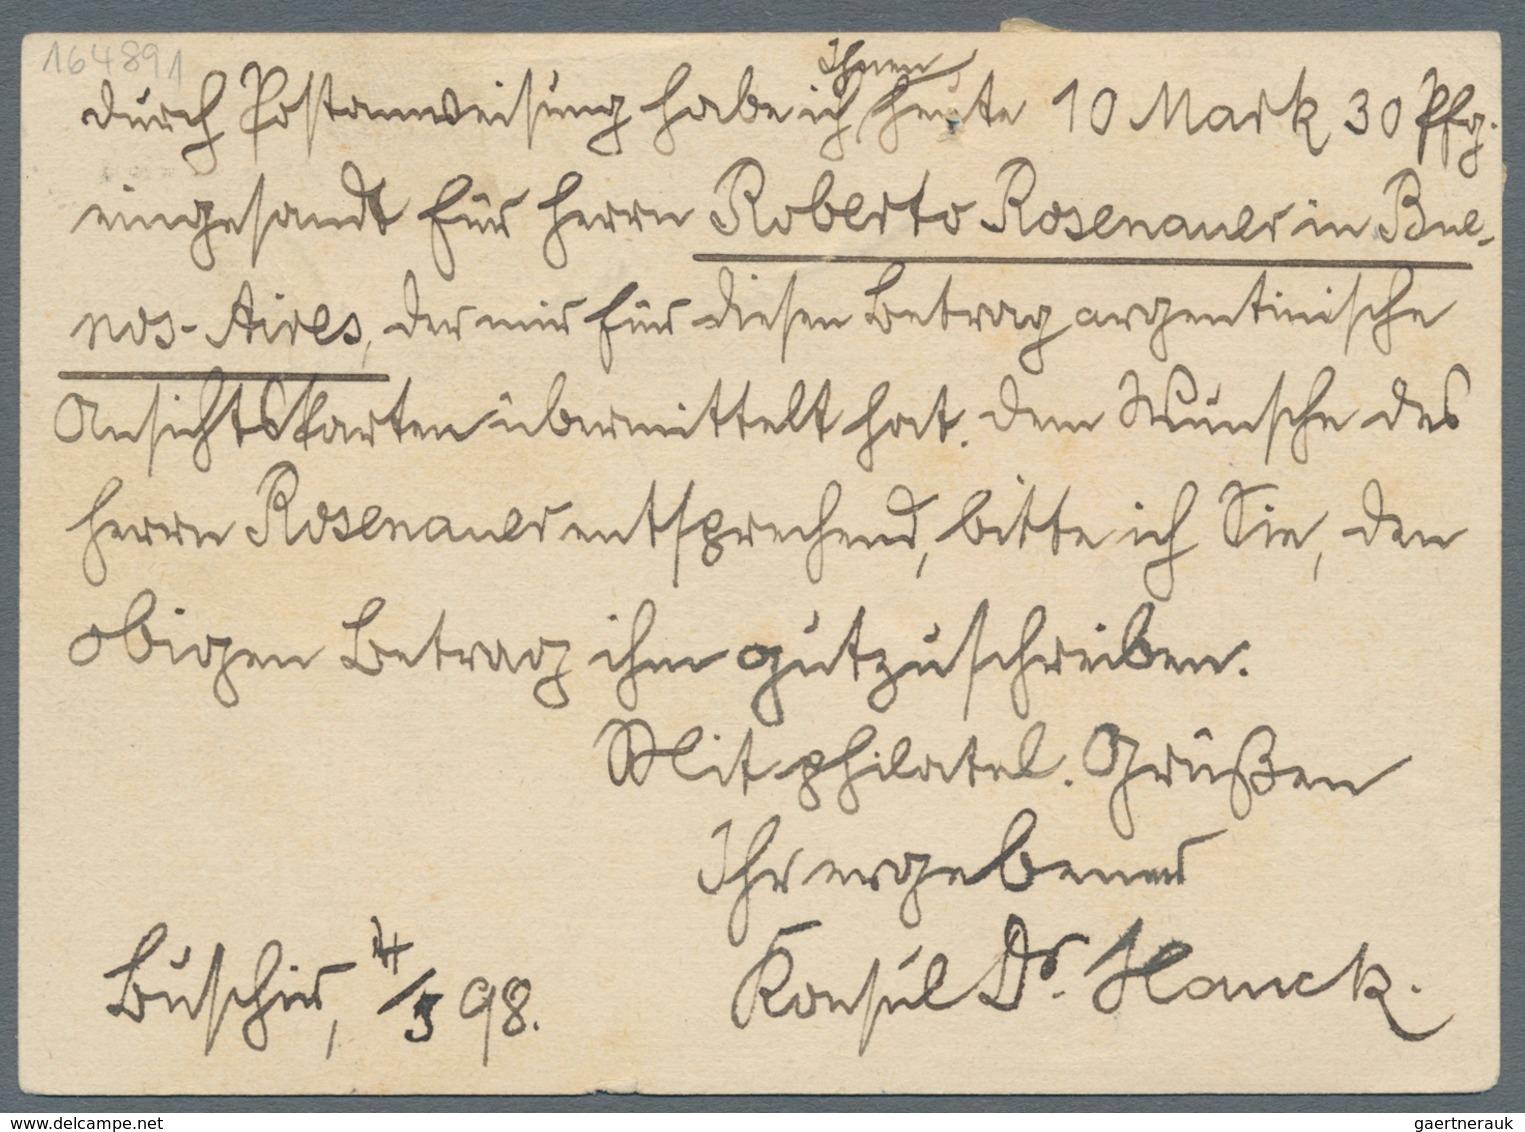 164891
Durch Postanweisung habe ich Ihnen heute 10 Mark 30 Pfg.
eingesandt für Herrn Roberto Rosenauer in Bue-
nos-Aires, der mir für diesen Betrag argentinische
Ansichtskarten übermittelt hat. Dem Wunsche des
Herrn Rosenauer entsprechend, bitte ich Sie, den
obigen Betrag ihm gutzuschreiben.
Mit philatel. Grüßen
Ihr ergebener
Konsul Dr. Hanck.
Buschir, /5 98.
www.delcampe.net
gaertnerauk